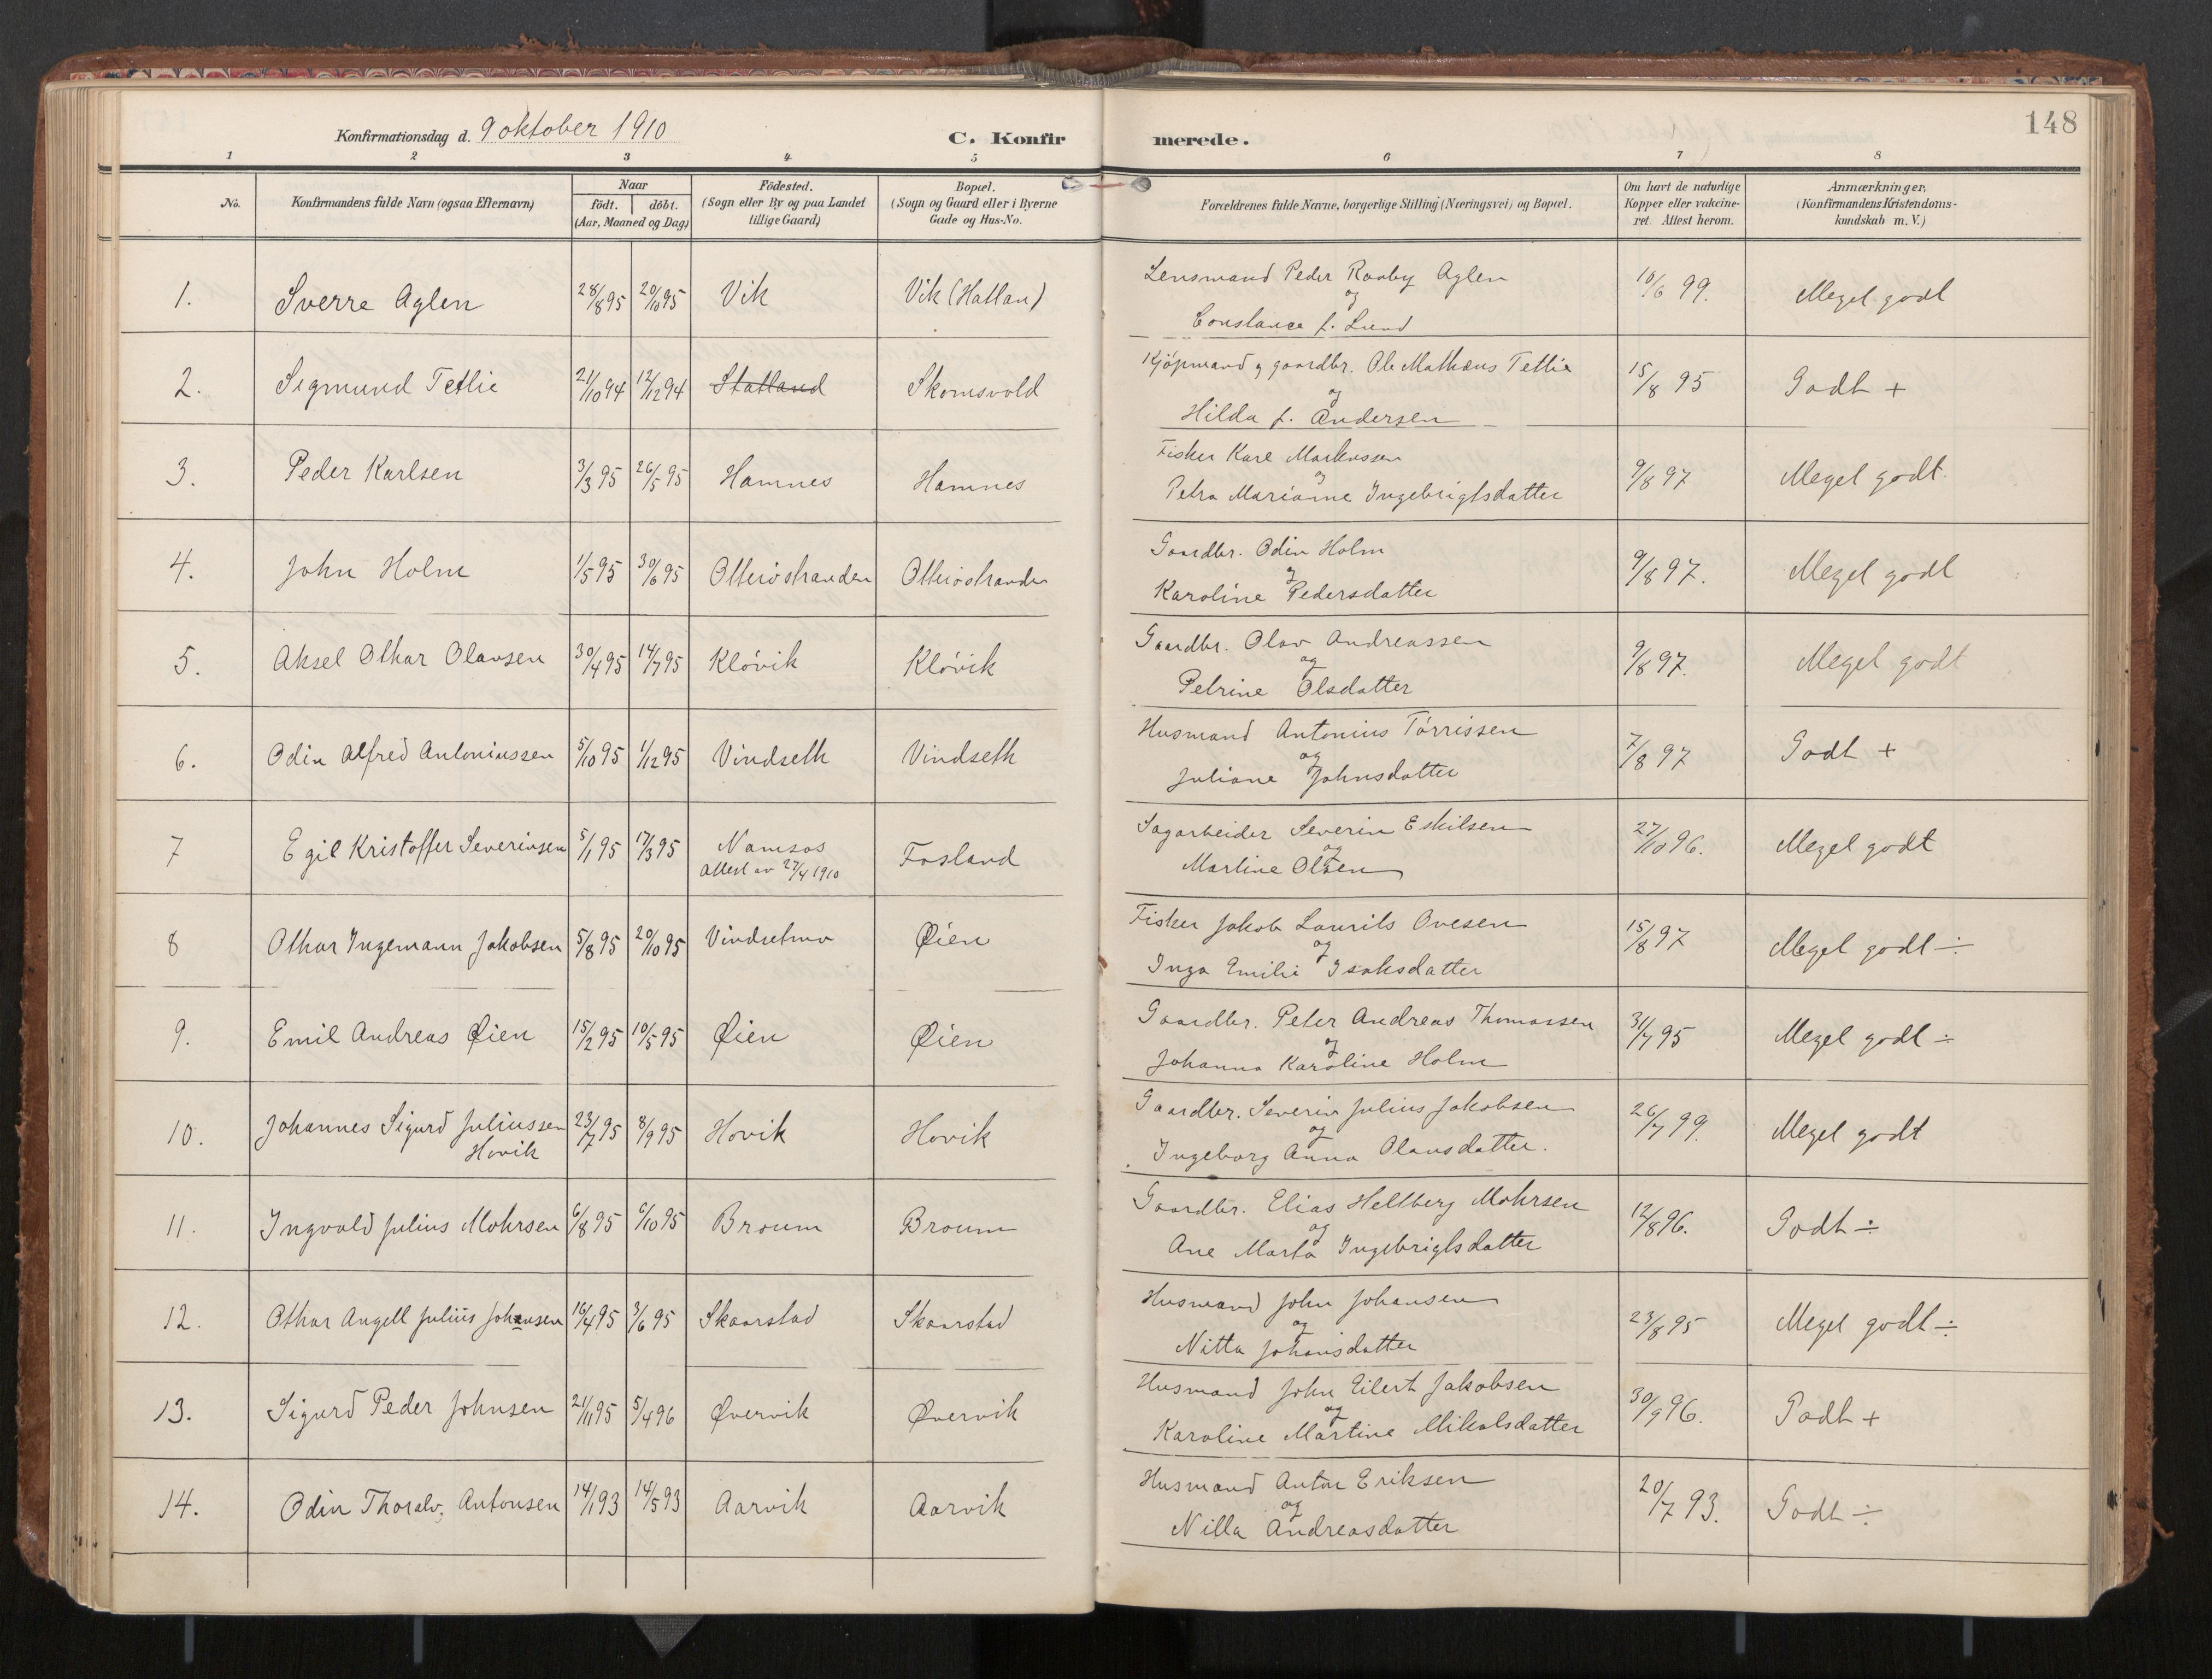 148
Konfirmationsdag d. 9 oktober 1910
C. Konfirmerede.
1 2 3 4 5 6 7 8
No.
Konfirmandens fulde Navn (ogsaa Efternavn)
Naar
födt. döbt.
(Aar, Maaned og Dag)
Födested.
(Sogn eller By og paa Landet
tillige Gaard)
Bopæl.
(Sogn og Gaard eller i Byerne
Gade og Hus-No.
Forældrenes fulde Navne, borgerlige Stilling (Næringsvei) og Bopæl.
Om havt de naturlige
Kopper eller vakcine-
ret Attest herom.
Anmærkninger,
(Konfirmandens Kristendoms-
kundskab m. V.)
1. Sverre Aglen 28/8 95 20/10 95 Vik Vik (Hatlan) Lensmand Peder Raaby Aglen 10/6 99. Meget godt
og
Constance f. Lund
2. Sigmund Tetlie 21/10 94 12/12 94 Statland Skomsvold Kjöpmand og gaardbr. Ole Mathæus Tetlie 15/8 95 Godt +
og
Hilda f. Andersen
3. Peder Karlsen 3/3 95 26/5 95 Hamnes Hamnes Fisker Karl Markussen 9/8 97 Meget godt
og
Petra Marianne Ingebrigtsdatter
4. John Holm 1/5 95 30/6 95 Otteröstranden Otteröstranden Gaardbr. Odin Holm 9/8 97. Meget godt
og
Karoline Pedersdatter
5. Aksel Othar Olausen 30/4 95 14/7 95 Klövik Klövik Gaardbr. Olav Andreassen 9/8 97. Meget godt
og
Petrine Olsdatter
6. Odin Alfred Antoniussen 5/10 95 1/12 95 Vindseth Vindseth Husmand Antonius Törrissen 7/8 97 Godt +
og
Juliane Johnsdatter
7 Egil Kristoffer Severinsen 5/1 95 17/3 95 Namsos Fosland Sagarbeider Severin Eskilsen 27/10 96. Meget godt
Attest av 27/4 1910
og
Martine Olsen
8 Othar Ingemann Jakobsen 5/8 95 20/10 95 Vindsetmo Øien Fisker Jakob Laurits Ovesen 15/8 97 Meget godt ÷
og
Inga Emilie Isaksdatter
9. Emil Andreas Øien 15/2 95 10/5 95 Øien Øien Gaardbr. Peter Andreas Thomassen 31/7 95 Meget godt ÷
og
Johanna Karoline Holm
10. Johannes Sigurd Juliussen 23/7 95 8/9 95 Hovik Hovik Gaardbr. Severin Julius Jakobsen 26/7 99. Meget godt
Hovik
og
Ingeborg Anna Olausdatter.
11. Ingvald Julius Mohrsen 6/8 95 6/10 95 Broum Broum Gaardbr. Elias Heltberg Mohrsen 12/8 96. Godt ÷
og
Ane Marta Ingebrigtsdatter
12. Othar Angell Julius Johansen 16/4 95 3/6 95 Skaarstad Skaarstad Husmand John Johansen 23/8 95 Meget godt ÷
og
Nitta Johansdatter
13. Sigurd Peder Johnsen 21/11 95 5/4 96 Øvervik Øvervik Husmand John Eilert Jakobsen 30/9 96. Godt +
og
Karoline Martine Mikalsdatter
14. Odin Thoralv. Antonsen 14/1 93 14/5 93 Aarvik Aarvik Husmand Anton Eriksen 20/7 93. Godt ÷
og
Nilla Andreasdatter